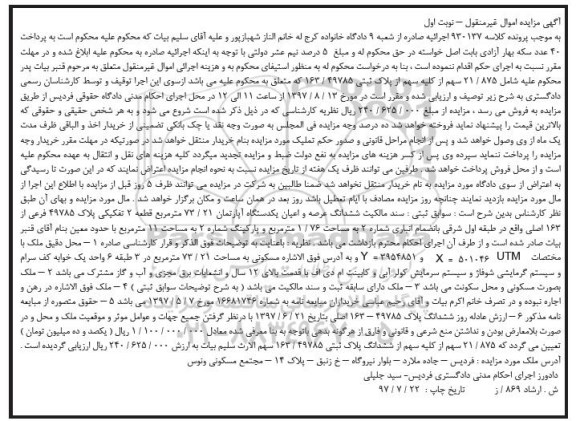 آگهی مزایده اموال غیرمنقول – نوبت اول
به موجب پرونده کلاسه ۹۳۰۱۳۷ اجرائیه صادره از شعبه ۹ دادگاه خانواده کرج له خانم الناز شهبازپور و علیه آقای سلیم بیات که محکوم علیه محکوم است به پرداخت
۴۰ عدد سکه بهار آزادی بابت اصل خواسته در حق محکوم له و مبلغ ۵ درصد نیم عشر دولتی با توجه به اینکه اجرائیه صادره به محکوم علیه ابلاغ شده و در مهلت
مقرر نسبت به اجرای حکم اقدام ننموده است ، بنا به درخواست محکوم له به منظور استیفای محکوم به و هزینه اجرائی اموال غیرمنقول متعلق به مرحوم قنبر بیات پدر
محکوم علیه شامل ۸۷۵ / ۲۱ سهم از کلیه سهم از پلاک ثبتی ۴۹۷۸۵ / ۱۶۳ که متعلق به محکوم علیه می باشد ازسوی این اجرا توقیف و توسط کارشناسان رسمی
دادگستری به شرح زیر توصیف و ارزیابی شده و مقرر است در مورخ ۱۳ / ۸ / ۱۳۹۷ از ساعت ۱۱ الی ۱۲ در محل اجرای احکام مدنی دادگاه حقوقی فردیس از طریق
مزایده به فروش می رسد ، مزایده از مبلغ ۰۰۰ / ۶۲۵ / ۲۴۰ ریال نظریه کارشناسی که در ذیل ذکر شده است شروع می شود و به هر شخص حقیقی و حقوقی که
بالاترین قیمت را پیشنهاد نماید فروخته خواهد شد ده درصد وجه مزایده فی المجلس به صورت وجه نقد یا چک بانکی تضمینی از خریدار اخذ و الباقی ظرف مدت
یک ماه از وی وصول خواهد شد و پس از انجام مراحل قانونی و صدور حکم تملیک مورد مزایده بنام خریدار منتقل خواهد شد در صورتیکه در مهلت مقرر خریدار وجه
مزایده را پرداخت ننماید سپرده وی پس از کسر هزینه های مزایده به نفع دولت ضبط و مزایده تجدید میگردد کلیه هزینه های نقل و انتقال به عهده محکوم علیه
است و از محل فروش پرداخت خواهد شد. طرفین می توانند ظرف یک هفته از تاریخ مزایده نسبت به نحوه انجام مزایده اعتراض نمایند که در این صورت تا رسیدگی
به اعتراض از سوی دادگاه مورد مزایده به نام خریدار منتقل نخواهد شد ضمنا طالبین به شرکت در مزایده می توانند ظرف ۵ روز قبل از مزایده با اطلاع این اجرا از
مال مورد مزایده بازدید نمایند چنانچه روز مزایده مصادف با ایام تعطیل باشد روز بعد در همان ساعت و مکان برگزار خواهد شد . مال مورد مزایده و بهای آن طبق
نظر کارشناس بدین شرح است : سوابق ثبتی : سند مالکیت ششدانگ عرصه و اعیان یکدستگاه آپارتمان ۲۱ / ۷۳ مترمربع قطعه ۲ تفکیکی پلاک ۴۹۷۸۵ فرعی از
۱۶۳ اصلی واقع در طبقه اول شرقی باانضمام انباری شماره ۲ به مساحت ۷۶ / ۱ مترمربع و پارکینگ شماره ۲ به مساحت ۱۱ مترمربع با حدود معین بنام آقای قنبر
بیات صادر شده است و از طرف آن اجرای احکام محترم بازداشت می باشد . نظریه : باعنایت به توضیحات فوق الذکر و قرار کارشناسی صادره ۱ – محل دقیق ملک با
مختصات UTM X = ۵۰۱۰۴۶ و Y = ۳۹۵۴۸۵۱ و به آدرس فوق الاشاره مسکونی به مساحت ۲۱ / ۷۳ مترمربع در ۳ طبقه ۶ واحد یک خوابه کف سرام
و سیستم گرمایشی شوفاژ و سیستم سرمایش کولر آبی و کابینت ام دی اف با قدمت بالای ۱۲ سال و انشعابات برق مجزی و آب و گاز مشترک می باشد ۲ – ملک
بصورت مسکونی و محل سکونت می باشد ۳ – ملک دارای سابقه ثبت و سند مالکیت می باشد ( به شرح توضیحات سوابق ثبتی ) ۴ – ملک فوق الاشاره در رهن و
اجاره نبوده و در تصرف خانم اکرم بیات و آقای رستم صیامی خریداران مبایعه نامه به شماره ۱۶۶۸۱۷۴۶ مورخ ۷ / ۵ / ۱۳۹۷ می باشد ۵ – حقوق متصوره از مبایعه
نامه مذکور ۶ – ارزش عادله روز ششدانگ پلاک ۴۹۷۸۵ – ۱۶۳ اصلی بتاریخ ۲۱ / ۶ / ۱۳۹۷ با درنظر گرفتن جمیع جهات و عوامل موثر و موقعیت ملک و محل و در
صورت بلامعارض بودن و نداشتن منع شرعی و قانونی و فارق از هرگونه بدهی باتوجه به بنا معرفی شده معادل ۰۰۰ / ۰۰۰ / ۱۰۰ / ۱ ریال ( یکصد و ده میلیون تومان )
تعیین می گردد که ۸۷۵ / ۲۱ سهم از کلیه سهم از ششدانگ پلاک ثبتی ۴۹۷۸۵ / ۱۶۳ سهم الارث سلیم بیات به ارزش ۰۰۰ / ۶۲۵ / ۲۴۰ ریال ارزیابی گردیده است .
آدرس ملک مورد مزایده : فردیس – جاده ملارد – بلوار نیروگاه – خ زنبق – پلاک ۱۴ – مجتمع مسکونی ونوس
دادورز اجرای احکام مدنی دادگستری فردیس– سید جلیلی
ش . ارشاد ۸۶۹ / ز تاریخ چاپ : ۲۲ / ۷ / ۹۷